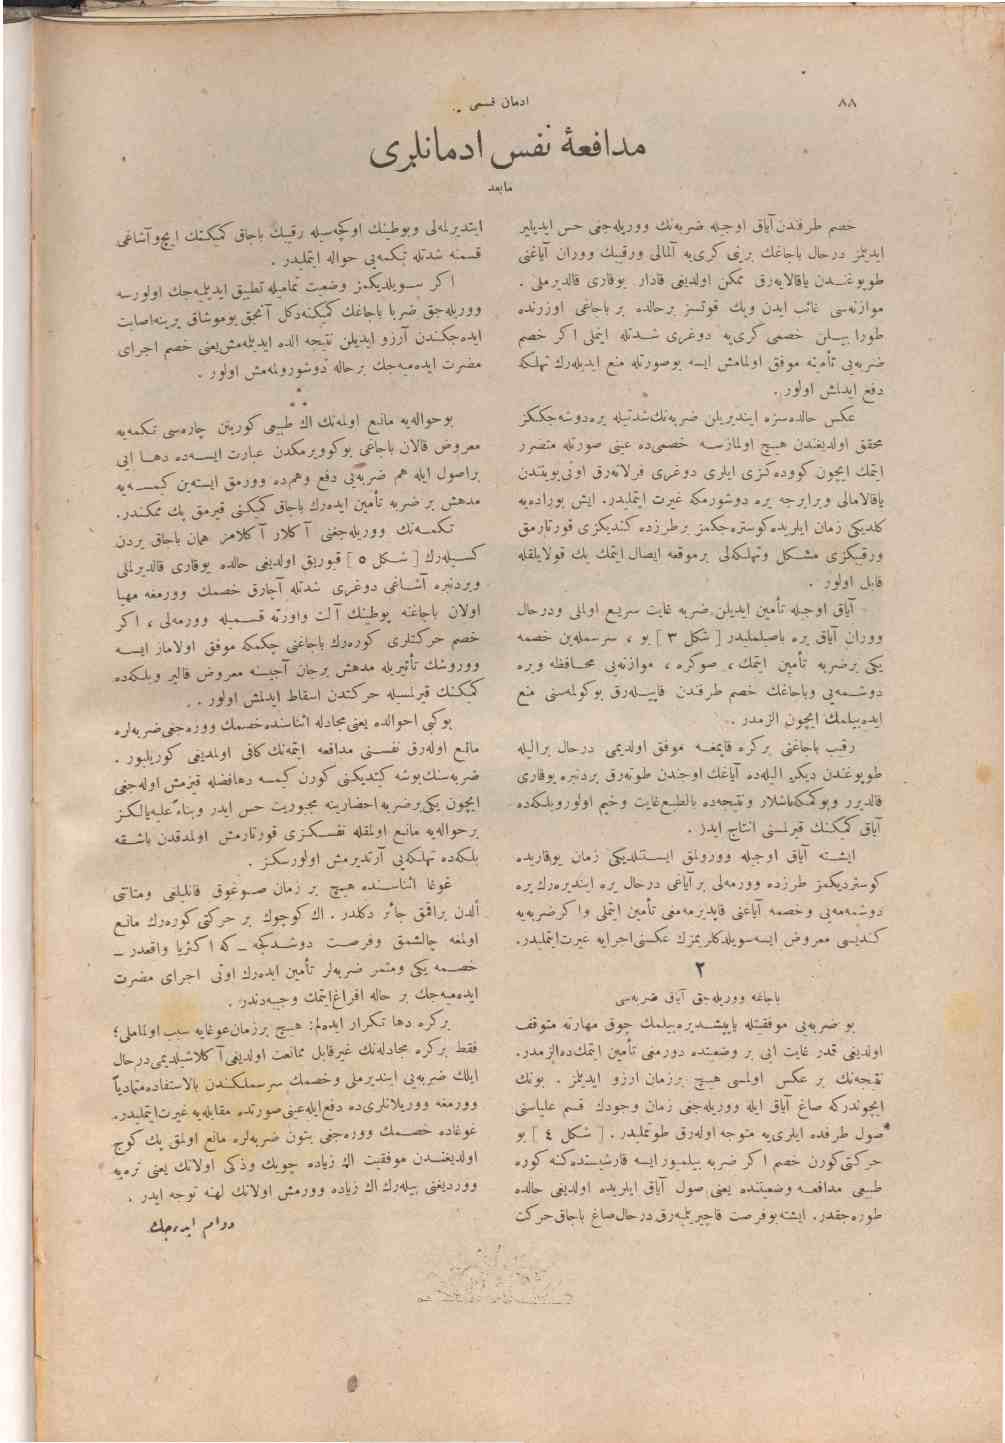 ٨٨
ادمان قسمی
مدافعهٔ نفس ادمانلری
مابعد
خصم طرفندن آیاق اوجیله ضربه‌نك ووریله‌جغی حس ایدیلیر
ایدیلمز درحال باجاغك برینی کری‌یه آلمالی ورقیبك ووران آیاغنی
طوپوغندن یاقالایه‌رق ممکن اولدیغی قادار یوقاری قالدیرملی .
موازنه‌سی غائب ایدن وپك قوتسز برحالده بر باجاغی اوزرنده
طورا بیلن خصمی کری‌یه دوغری شدتله ایتملی اکر خصم
ضربه‌یی تأمینه موفق اولمامش ایسه بوصورتله منع ایدیله‌رك تهلکه
دفع ایدلمش اولور .
عکس حالده‌سزه ایندیریلن ضربه‌نك شدتیله یره‌دوشه‌جککز
محقق اولدیغندن هیچ اولمازسه خصمی‌ده عینی صورتله متضرر
ایتمك ایچون کووده‌کزی ایلری دوغری فرلاته‌رق اونی‌بویندن
یاقالامالی وبرابرجه یره دوشورمکه غیرت ایتملیدر. ایش بوراده‌یه
کلدیکی زمان ایلریده‌کوستره‌جکمز برطرزده کندیکزی قورتارمق
ورقیبکزی مشکل وتهلکه‌لی برموقعه ایصال ایتمك پك قولایلقله
قابل اولور .
آیاق اوجیله تأمین ایدیلن ضربه غایت سریع اولالی ودرحال
ووران آیاق یره باصیلملیدر [ شکل ٣ ] بو ، سرسمله‌ین خصمه
یکی برضربه تأمین ایتمك ، صوکره ، موازنه‌یی محافظه ویره
دوشمه‌یی وباجاغك خصم طرفندن قاپیله‌رق بوکولمه‌سنی منع
ایده‌بیلمك ایچون الزمدر .
رقیب باجاغنی برکره قاپمغه موفق اولدیمی درحال برالیله
طوپوغندن دیکر الیله‌ده آیاغك اوجندن طوته‌رق بردنبره یوقاری
قالدیرر وبوکمکه‌باشلار ونتیجه‌ده بالطبع‌غایت وخیم اولوروبلکه‌ده
آیاق کمیکنك قیرلمسنی انتاج ایدر .
ایشته آیاق اوجیله وورولمق ایستنلدیکی زمان یوقاریده
کوستردیکمز طرزده وورمه‌لی برآیاغی درحال یره ایندیره‌رك یره
دوشمه‌مه‌یی وخصمه آیاغنی قاپدیرمه‌مغی تأمین ایتملی واکرضربه‌یه
کندیسی معروض ایسه‌سویلدکلریمزك عکسنی‌اجرایه غیرت‌ایتملیدر.
٢
باجاغه ووریله‌جق آیاق ضربه‌سی
بو ضربه‌یی موفقیتله یاپیشدیره‌بیلمك چوق مهارته متوقف
اولدیغی قدر غایت ایی بر وضعیتده دورمغی تأمین ایتمك‌ده‌الزمدر.
نتیجه‌نك بر عکس اولمسی هیچ برزمان ارزو ایدیلمز . بونك
ایچوندرکه صاغ آیاق ایله ووریله‌جغی زمان وجودك قسم علیاسنی
صول طرفده ایلری‌یه متوجه اوله‌رق طوتملیدر. [ شکل ٤ ] بو
حرکتی‌کورن خصم اکر ضربه بیلمیور ایسه قارشیسنده‌کنه کوره
طبیعی مدافعه وضعیتنده یعنی صول آیاق ایلریده اولدیغی حالده
طوره‌جقدر. ایشته‌بوفرصت قاچیریلمیه‌رق درحال‌صاغ باجاق حرکت
ایتدیرلمه‌لی وبوطینك اوکچه‌سیله رقیبك باجاق کمیکنك ایچ‌وآشاغی
قسمنه شدتله تپکمه‌یی حواله ایتملیدر .
اکر سویلدیکمز وضعیت تمامیله تطبیق ایدیلیه‌جك اولورسه
ووریله‌جق ضربا باجاغك کمیکنه‌دکل آنجق یوموشاق یرینه‌اصابت
ایده‌جکندن آرزو ایدیلن نتیجه الده ایدیله‌مش‌یعنی خصم اجرای
مضرت ایده‌میه‌جك برحاله دوشورولمه‌مش اولور .
* * *
بوحواله‌یه مانع اولمه‌نك اك طبیعی کورینن چاره‌سی تکمه‌یه
معروض قالان باجاغی بوکوویرمکدن عبارت ایسه‌ده دها ایی
براصول ایله هم ضربه‌یی دفع وهم‌ده وورمق ایسته‌ین کیمسه‌یه
مدهش بر ضربه تأمین ایده‌رك باجاق کمیکنی قیرمق پك ممکندر.
تکمه‌نك ووریله‌جغنی آکلار آکلامز همان باجاق یردن
کسیله‌رك [ شکل ٥ ] قیوریق اولدیغی حالده یوقاری قالدیرلملی
وبردنبره آشاغی دوغری شدتله آچارق خصمك وورمغه مهیا
اولان باجاغنه پوطینك آلت واورته قسمیله وورمه‌لی ، اکر
خصم حرکتلری کوره‌رك باجاغنی چکمکه موفق اولاماز ایسه
ووروشك تأثیریله مدهش برجان آجیسنه معروض قالیر وبلکه‌ده
کمیکنك قیرلمسیله حرکتدن اسقاط ایدلمش اولور .
بوکبی احوالده یعنی‌مجادله اثناسنده‌خصمك ووره‌جغی‌ضربه‌لره
مانع اوله‌رق نفسنی مدافعه ایتمه‌نك کافی اولمدیغی کوریلیور .
ضربه‌سنك‌بوشه کیتدیکنی کورن کیمسه دهافضله قیزمش اوله‌جغی
ایچون یکی برضربه احضارینه مجبوریت حس ایدر وبناءً علیه‌یالکز
برحواله‌یه مانع اولمقله نفسکزی قورتارمش اولمدقدن باشقه
بلکه‌ده تهلکه‌یی آرتدیرمش اولورسکز .
غوغا اثناسنده هیچ بر زمان صوغوق قانلیلغی ومتانتی
ألدن براقمق جائز دکلدر. اك کوچوك بر حرکتی کوره‌رك مانع
اولمغه چالشمق وفرصت دوشدکجه ـ که اکثریا واقعدر ـ
خصمه یکی ومثمر ضربه‌لر تأمین ایده‌رك اونی اجرای مضرت
ایده‌میه‌جك بر حاله افراغ‌ایتمك وجیبه‌دندر .
برکره دها تکرار ایده‌لم: هیچ برزمان‌غوغایه سبب اولماملی؛
فقط برکره مجادله‌نك غیرقابل ممانعت اولدیغی‌آکلاشیلدیمی‌درحال
ایلك ضربه‌یی ایندیرملی وخصمك سرسملکندن بالاستفاده‌متمادیاً
وورمغه ووریلانلری‌ده دفع‌ایله‌عینی‌صورتده مقابله‌یه غیرت‌ایتملیدر.
غوغاده خصمك ووره‌جغی بتون ضربه‌لره مانع اولمق پك کوج
اولدیغندن موفقیت اك زیاده چویك وذکی اولانك یعنی نره‌یه
ووردیغنی بیله‌رك اك زیاده وورمش اولانك لهنه توجه ایدر .
دوام ایده‌جك